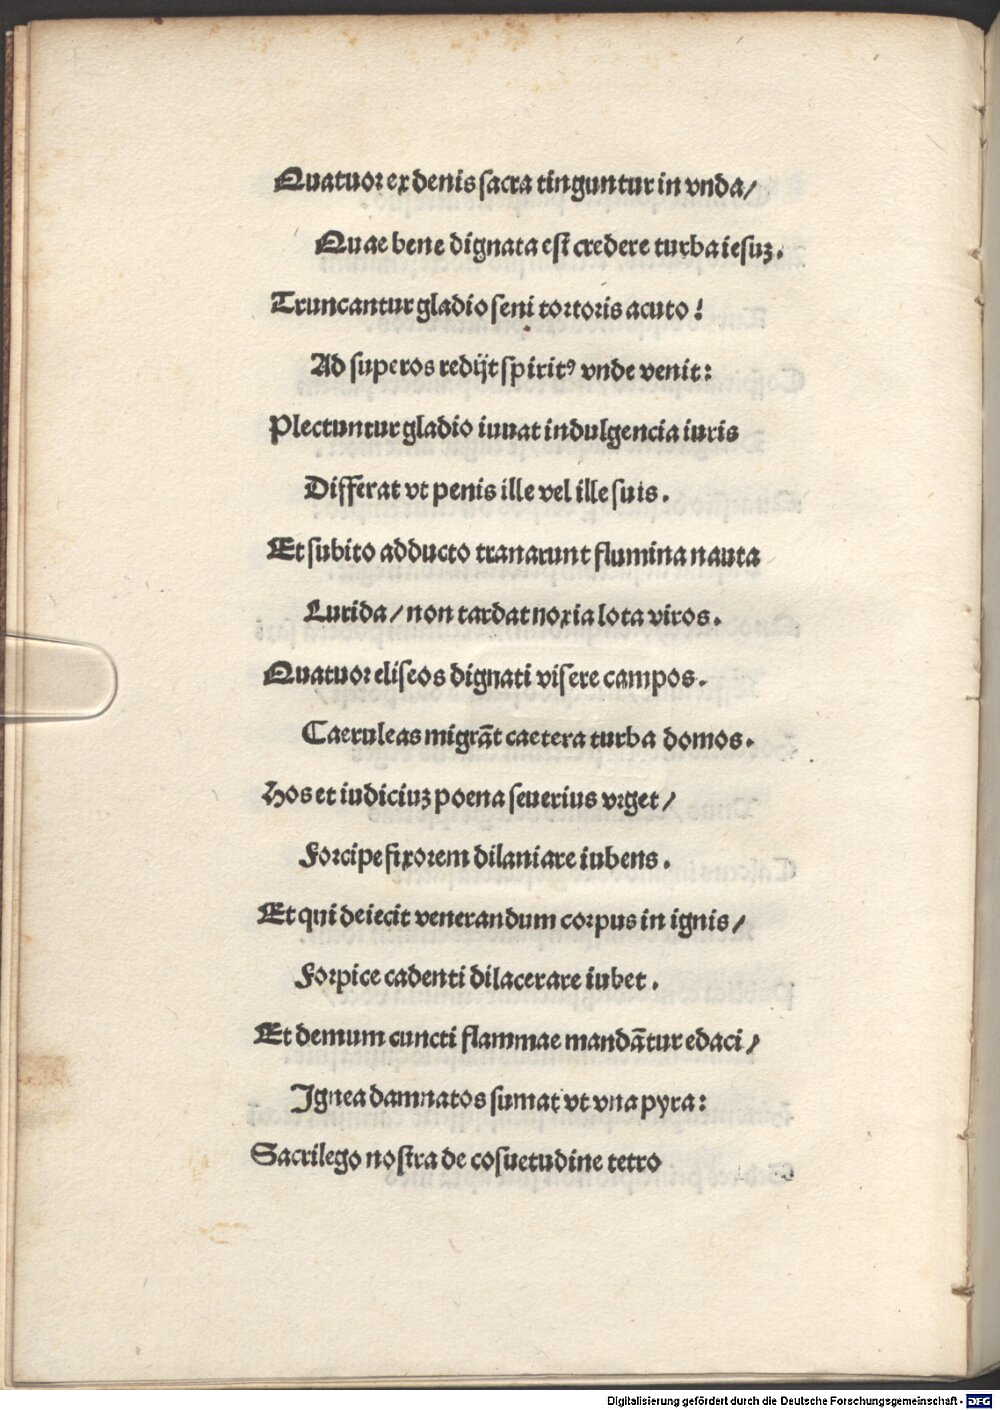 Quatuor ex denis sacra tinguntur in vnda/
Quae bene dignata est credere turba iesuz.
Truncantur gladio seni tortoris acuto!
Ad superos redijt spiritꝰ vnde venit:
Plectuntur gladio iuuat indulgencia iuris
Differat vt penis ille vel ille suis.
Et subito adducto tranarunt flumina nauta
Lurida/ non tardat noxia lota viros.
Quatuor eliseos dignati visere campos.
Caeruleas migrāt caetera turba domos.
Hos et iudiciuz poena seuerius vrget/
Forcipe fixorem dilaniare iubens.
Et qui deiecit venerandum corpus in ignis/
Forpice cadenti dilacerare iubet.
Et demum cuncti flammae mandātur edaci/
Ignea damnatos sumat vt vna pyra:
Sacrilego nostra de cosuetudine tetro
Digitalisierung gefördert durch die Deutsche Forschungsgemeinschaft - DFG